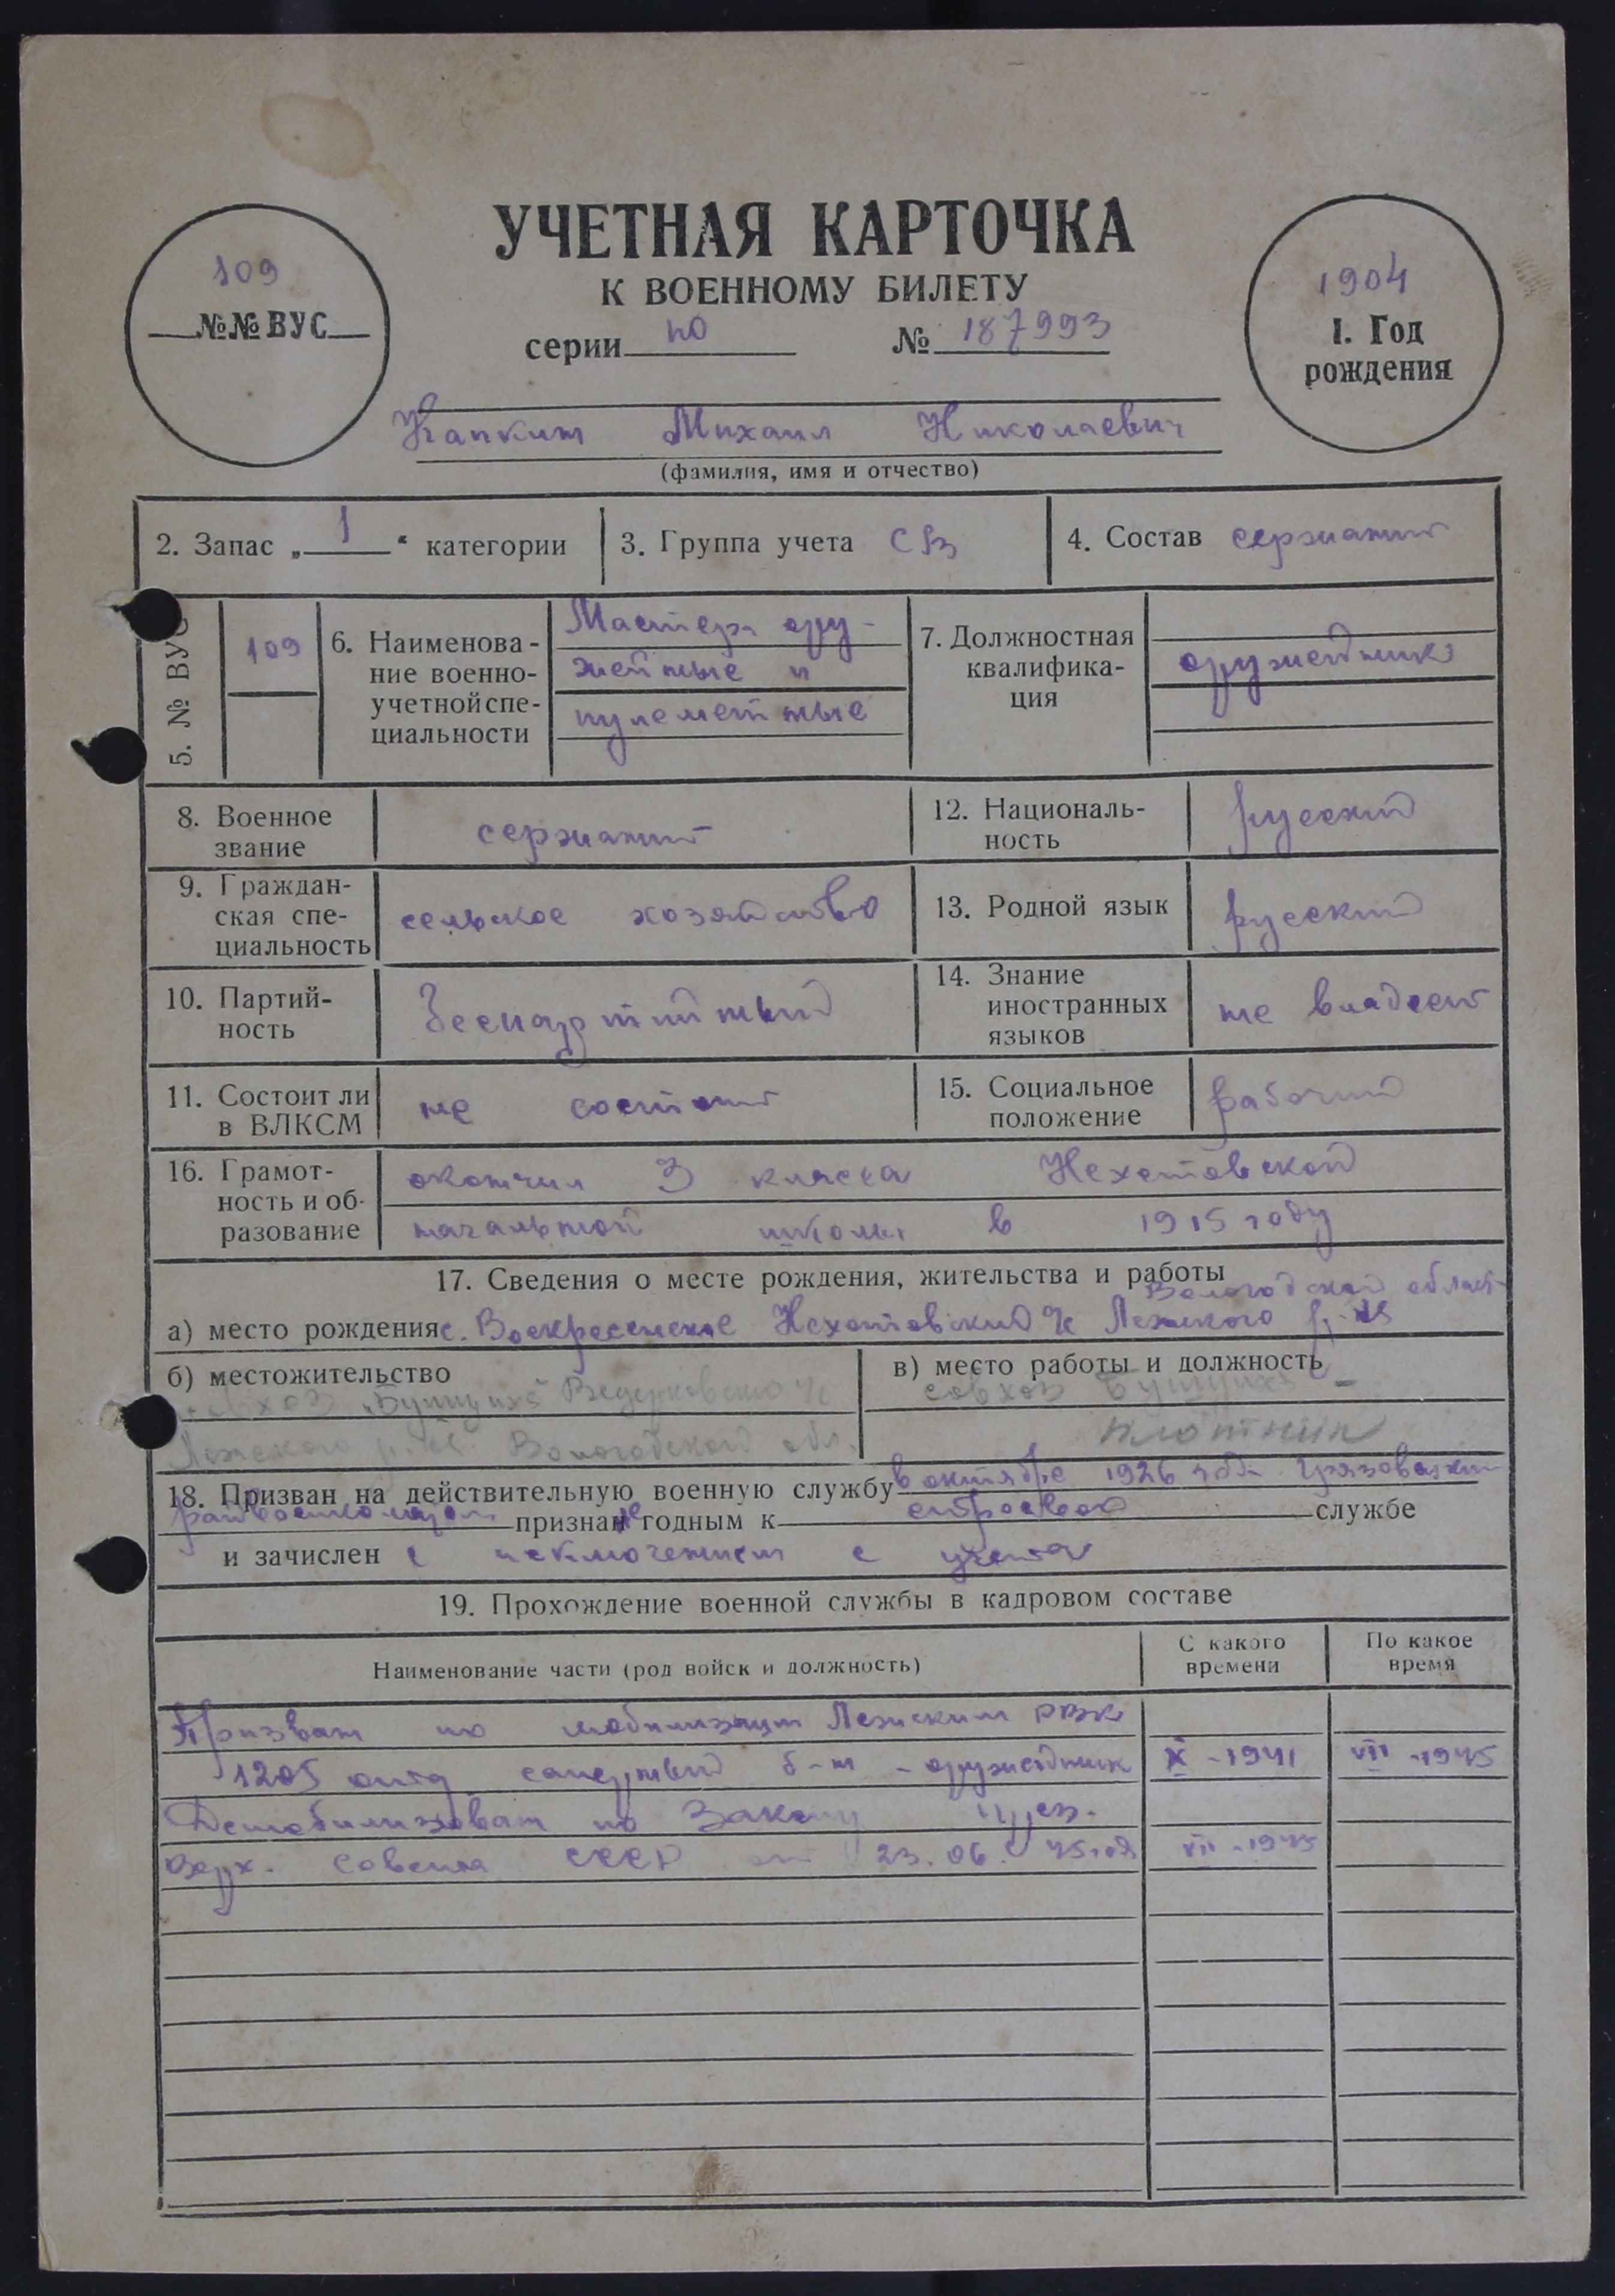 УЧЕТНАЯ КАРТОЧКА
К ВОЕННОМУ БИЛЕТУ
109
№№ ВУС
серии по № 187993
1904
1. Год
рождения
Капкин Михаил Николаевич
(фамилия, имя и отчество)
2. Запас „1“ категории
3. Группа учета СВ
4. Состав сержант
5. № ВУС
109
6. Наименова-
ние военно-
учетной спе-
циальности
Мастера ору-
жейные и
пулеметные
7. Должностная
квалифика-
ция
оружейник
8. Военное
звание
сержант
12. Националь-
ность
русский
9. Граждан-
ская спе-
циальность
сельское хозяйство
13. Родной язык
русский
10. Партий-
ность
беспартийный
14. Знание
иностранных
языков
не владеет
11. Состоит ли
в ВЛКСМ
не состоит
15. Социальное
положение
рабочий
16. Грамот-
ность и об-
разование
окончил 3 класса Нехотовской
начальной школы в 1915 году
17. Сведения о месте рождения, жительства и работы
Вологодской област
а) место рождения с. Воскресенское Нехотовский с/с Лежского р-на
б) местожительство
совхоз „Бушуиха“ с/с
Лежского р-на Вологодской обл.
в) место работы и должность
совхоз Бушуиха -
плотник
18. Призван на действительную военную службу в октябре 1926 года Грязовецким
райвоенкоматом признан не годным к строевой службе
и зачислен с исключением с учета
19. Прохождение военной службы в кадровом составе
Наименование части (род войск и должность)
С какого
времени
По какое
время
Призван по мобилизации Лежским РВК
1205 саперный б-н - оружейник X - 1941 VII - 1945
Демобилизован по Закону През.
Верх. Совета СССР от 23.06. 45 г. VII - 1945